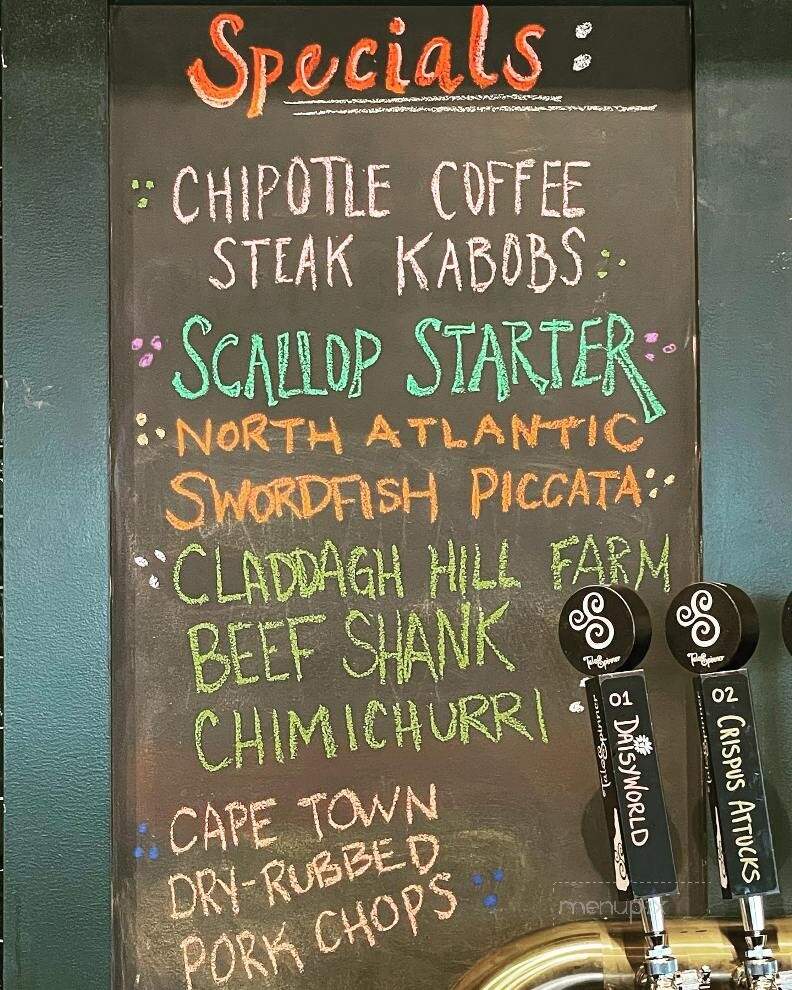 Specials:
CHIPOTLE COFFEE
STEAK KABOBS
SCALLOP STARTER
NORTH ATLANTIC
SWORDFISH PICCATA
CLADDAGH HILL FARM
BEEF SHANK
CHIMICHURRI
CAPE TOWN
DRY-RUBBED
PORK CHOPS
TaleSpinner
TaleSpinner
01 DAISYWORLD
TaleSpinner
02 CRISPUS ATTUCKS